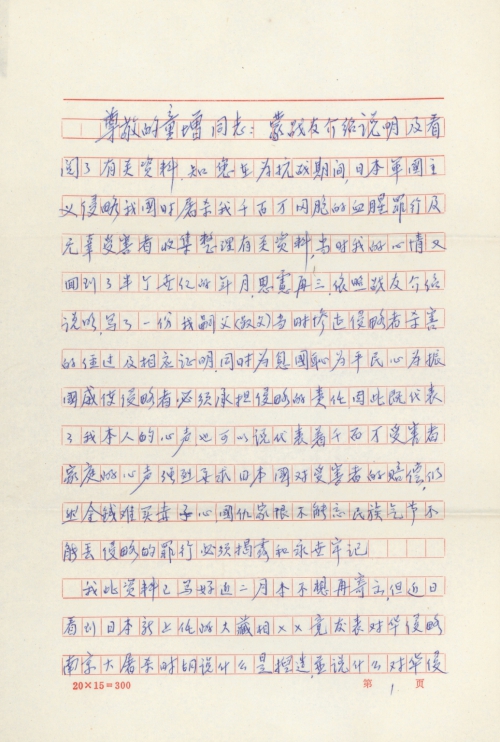 尊敬的童增同志：蒙战友介绍说明及看
阅了有关资料，知您在为抗战期间，日本军国主
义侵略我国时屠杀我千百万同胞的血腥罪行及
无辜受害者收集整理有关资料，当时我的心情又
回到了半个世纪的年月，思虑再三，依照战友介绍
说明，写了一份我嗣父(叔父)当时惨遭侵略者杀害
的经过及相应证明，同时为息国耻为平民心为振
国威使侵略者必须承担侵略的责任因此既代表
了我本人的心声也可以说代表着千百万受害者
家庭的心声强烈要求日本国对受害者的赔偿，仍
然金钱难买赤子心国仇家恨不能忘民族气节不
能丢侵略的罪行必须揭露和永安牢记
我此资料已写好近二月本不想再寄了，但近日
看到日本新上任的大藏相××竟发表对华侵略
南京大屠杀时胡说什么是捏造，并说什么对华侵
20×15=300 第 1 页